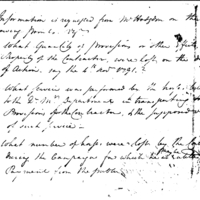 Information is requested from Mr Hodgdon on the
following Points. Viz
What Quantity of Provisions or other Effects
Property of the Contractor, were lost on the
of Action, say the 4th Novr 1791.
What service was performed by the
with the Qr Mrs department in transporting
Provisions for the Contractor, & the supposed
of such service
What number of horses were lost by the
during the Campaign for which he
Payment from the public